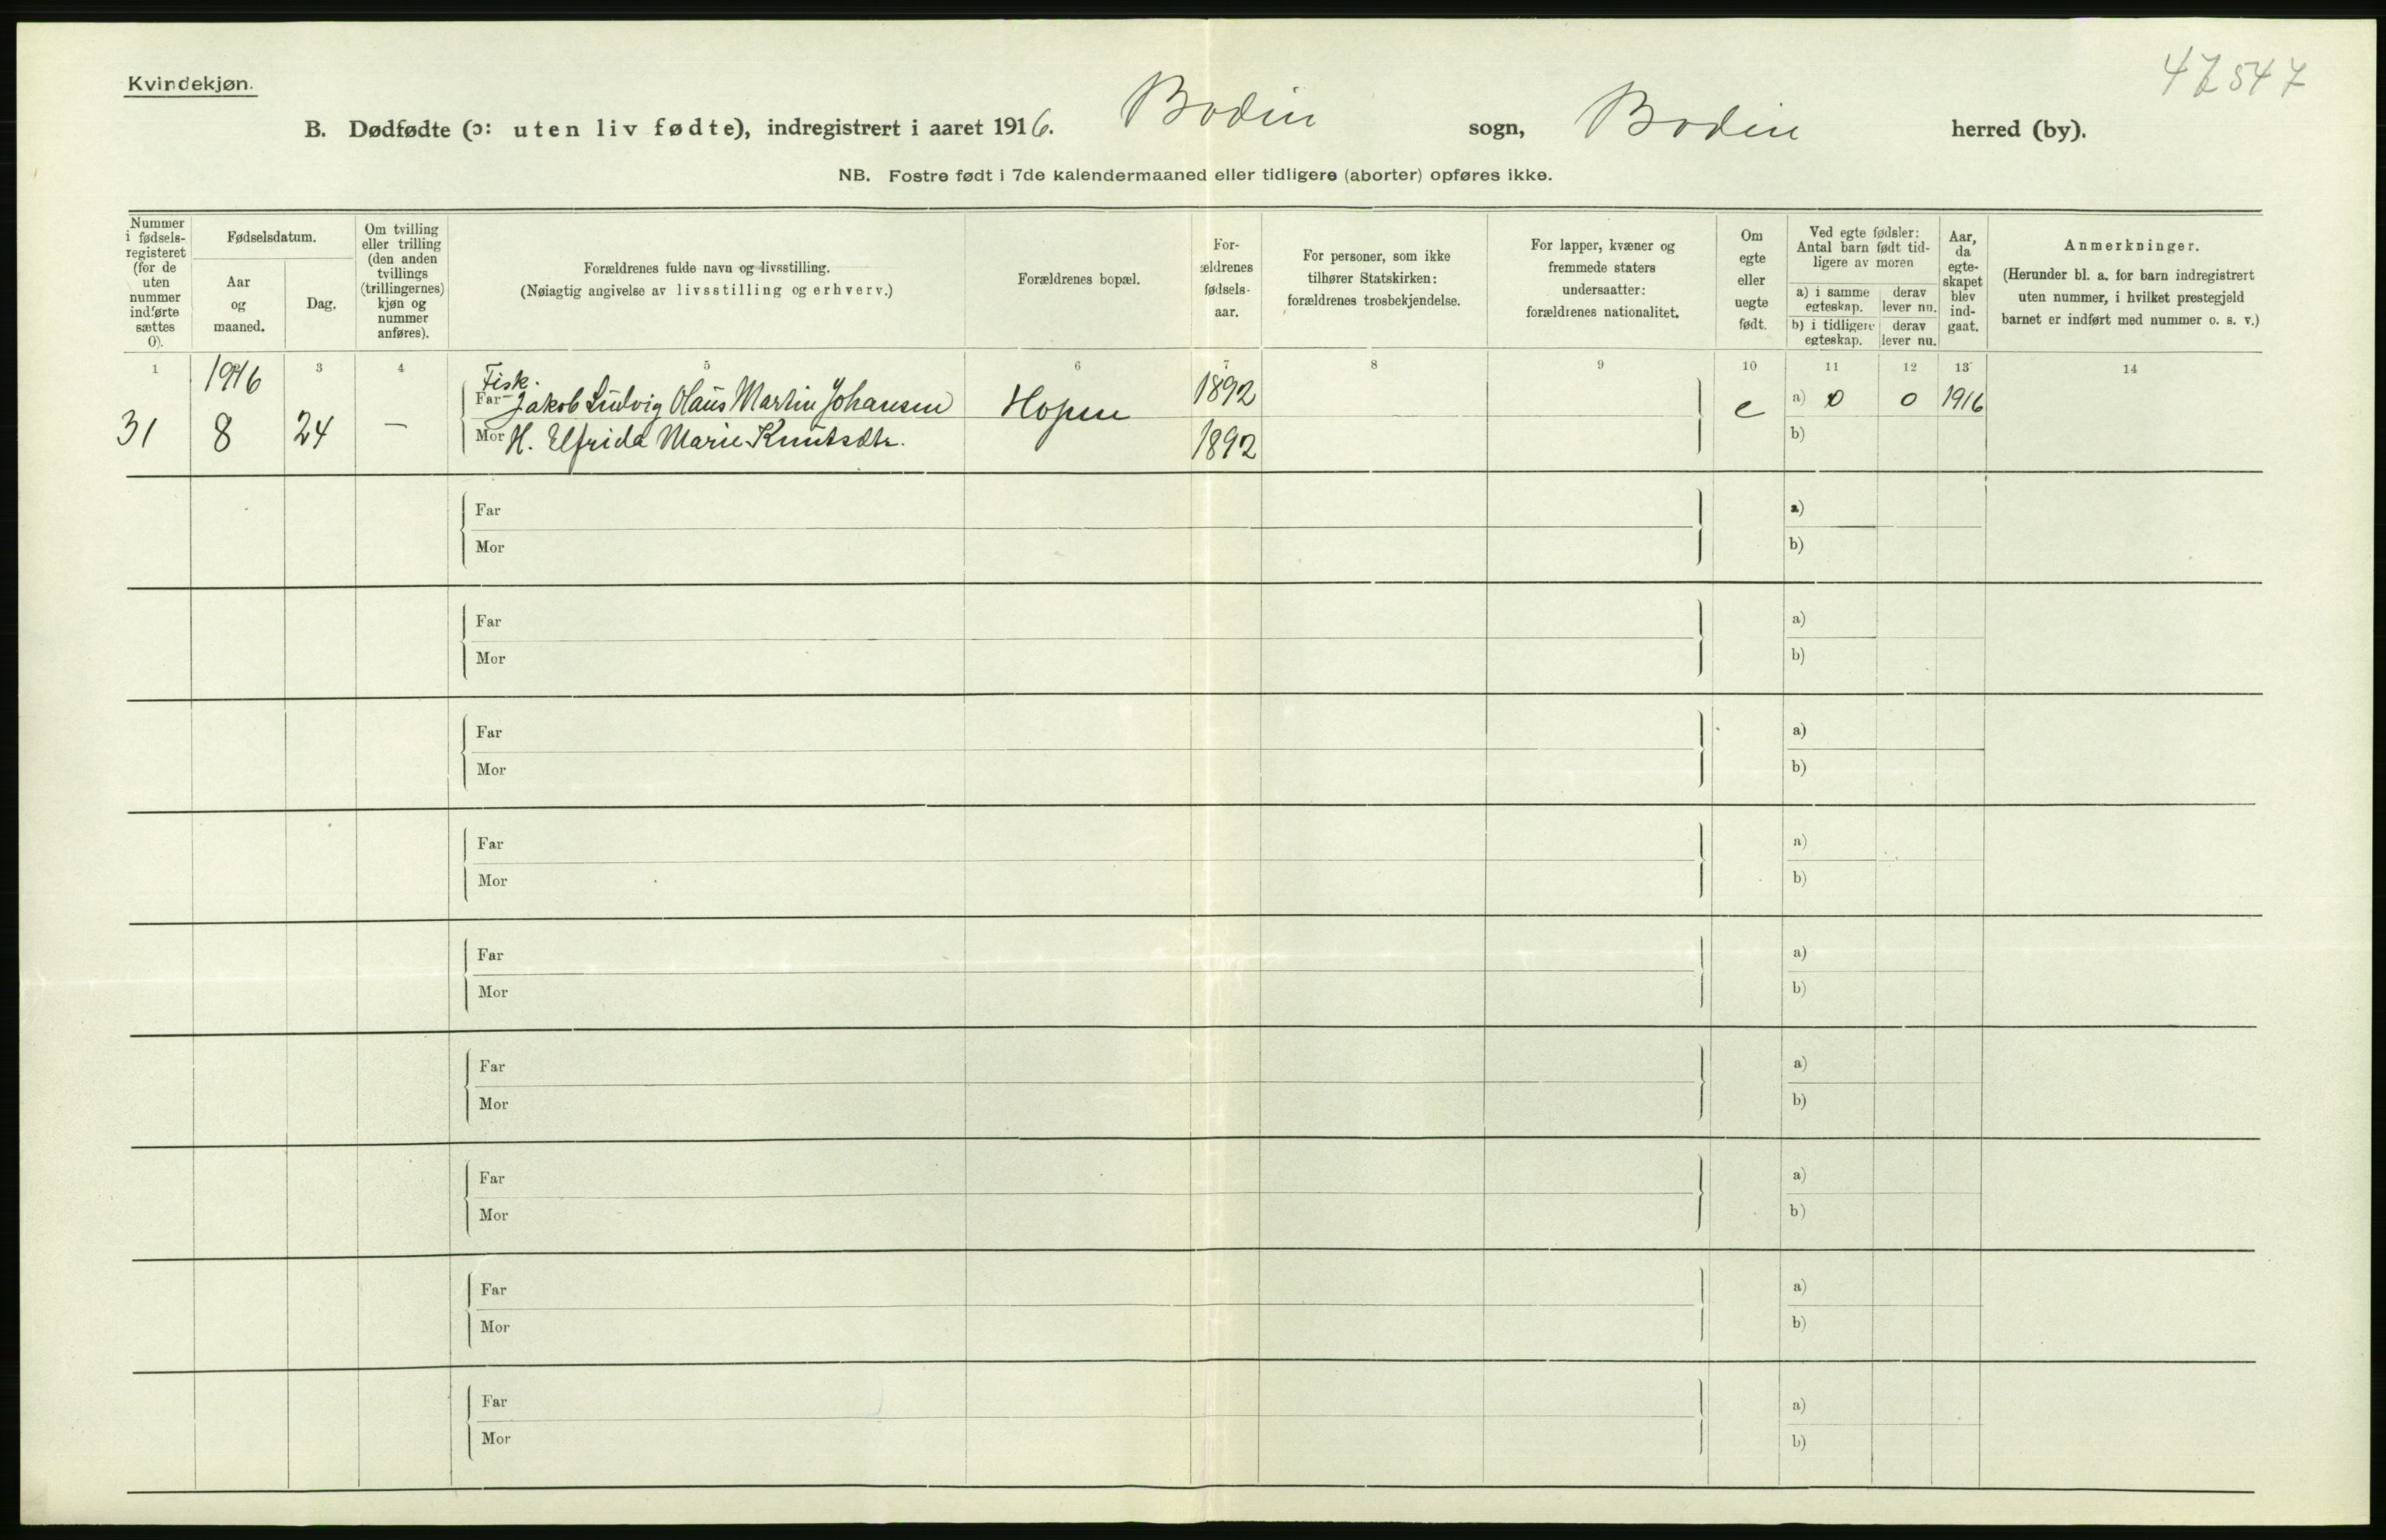 47547
Kvindekjøn.
B. Dødfødte (ɔ: uten liv fødte), indregistrert i aaret 1916. Bodin sogn, Bodin herred (by).
NB. Fostre født i 7de kalendermaaned eller tidligere (aborter) opføres ikke.
Nummer i fødsels-registeret (for de uten nummer indførte sættes 0).
Fødselsdatum.
Aar og maaned.
Dag.
Om tvilling eller trilling (den anden tvillings (trillingernes) kjøn og nummer anføres).
Forældrenes fulde navn og livsstilling.
(Nøiagtig angivelse av livsstilling og erhverv.)
Forældrenes bopæl.
For-ældrenes fødsels-aar.
For personer, som ikke tilhører Statskirken: forældrenes trosbekjendelse.
For lapper, kvæner og fremmede staters undersaatter: forældrenes nationalitet.
Om egte eller uegte født.
Ved egte fødsler: Antal barn født tid-ligere av moren
a) i samme egteskap.
derav lever nu.
b) i tidligere egteskap.
derav lever nu.
Aar, da egte-skapet blev ind-gaat.
Anmerkninger.
(Herunder bl. a. for barn indregistrert uten nummer, i hvilket prestegjeld barnet er indført med nummer o. s. v.)
1 3 4 5 6 7 8 9 10 11 12 13 14
1916
Fisk.
Far Jakob Ludvig Olaus Martin Johansen Hopen 1892 e a) 0 0 1916
31 8 24 —
Mor H. Elfrida Marie Knutsdtr. 1892 b)
Far a)
Mor b)
Far a)
Mor b)
Far a)
Mor b)
Far a)
Mor b)
Far a)
Mor b)
Far a)
Mor b)
Far a)
Mor b)
Far a)
Mor b)
Far a)
Mor b)